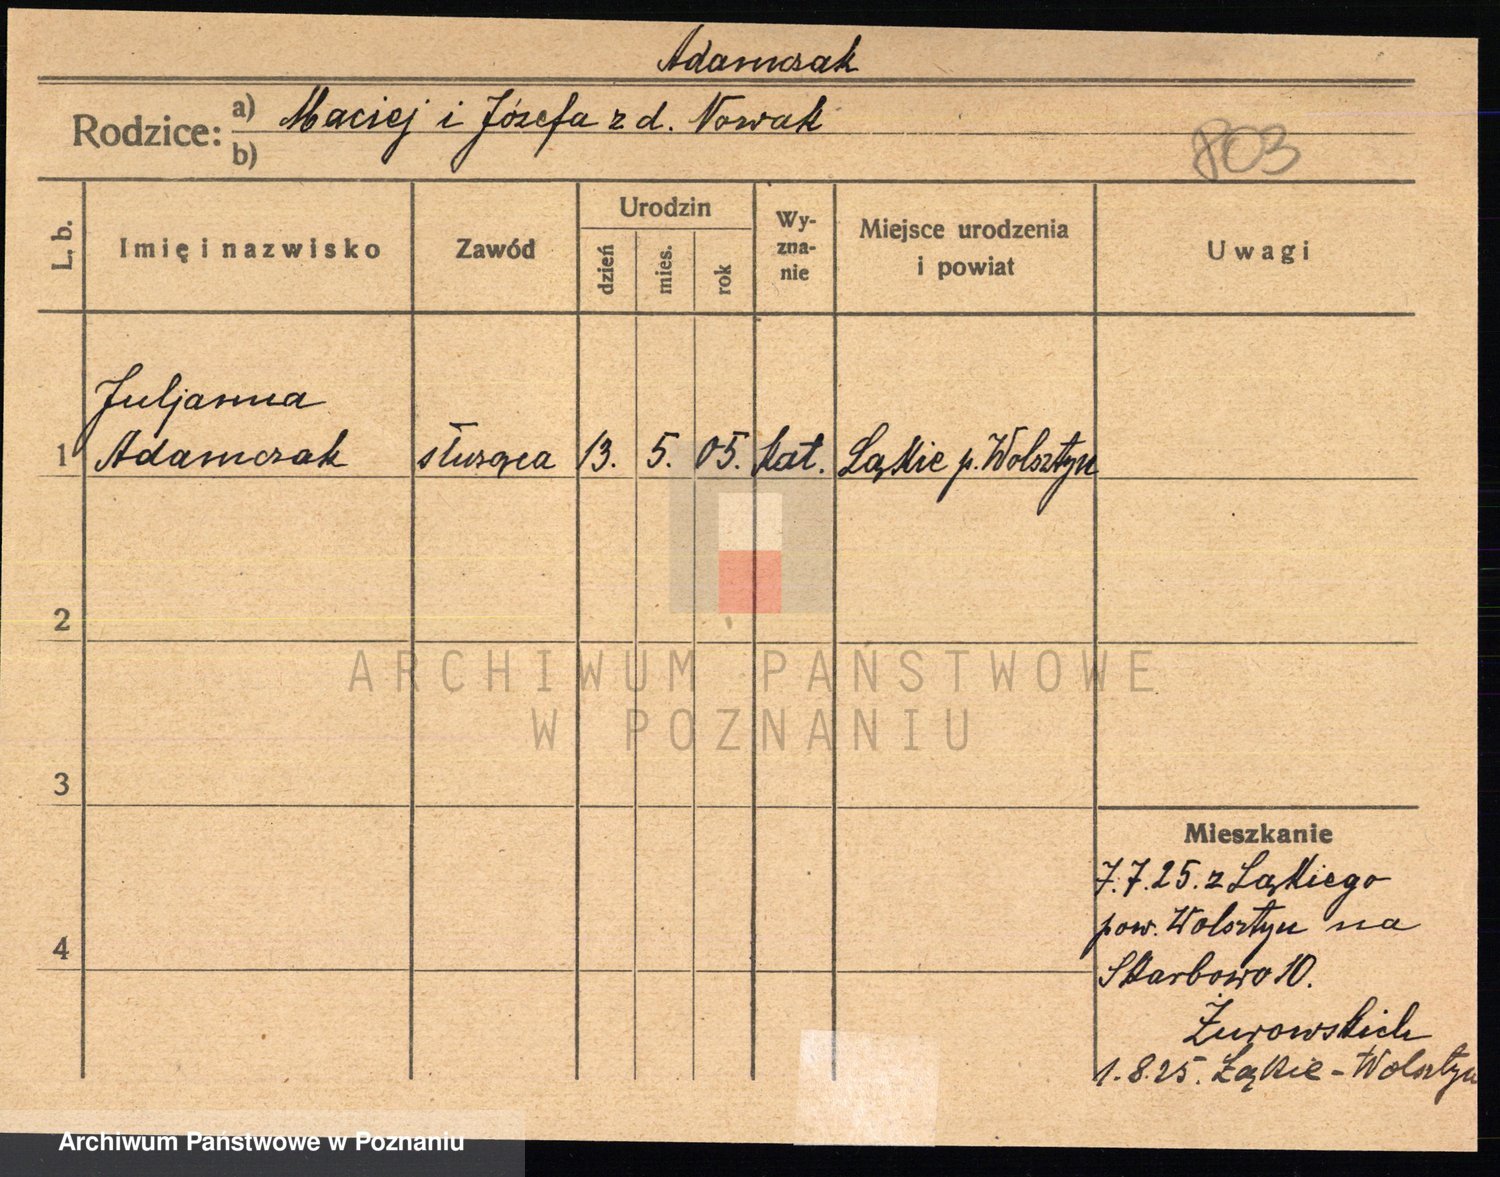 Adamczak
Rodzice: a) Maciej i Józefa z d. Nowak
b)
803
L. b.
Imię i nazwisko
Zawód
Urodzin
dzień
mies.
rok
Wy-
zna-
nie
Miejsce urodzenia
i powiat
Uwagi
Juljanna
1 Adamczak służąca 13. 5. 05. kat. Łąkie p. Wolsztyn
2
ARCHIWUM PAŃSTWOWE
W POZNANIU
3
Mieszkanie
7.7.25. z Łąkiego
pow. Wolsztyn na
4
Skarbowo 10.
Żurowskich
1.8.25. Łąkie - Wolsztyn
Archiwum Państwowe w Poznaniu